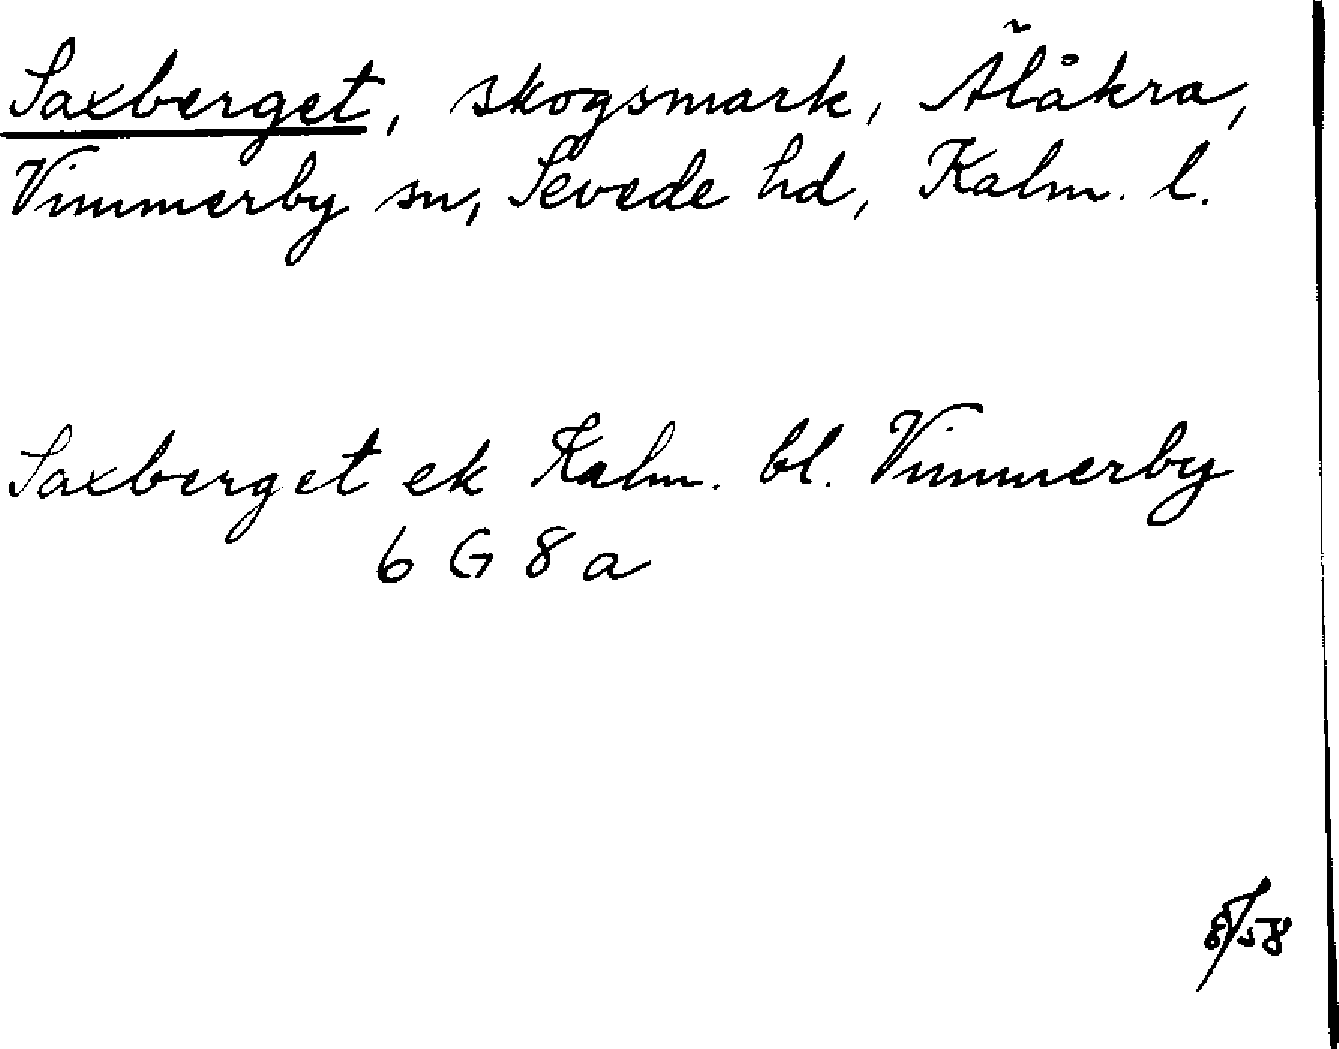 Saxberget, skogsmark, Ålåkra,
Vimmerby sn, Sevede hd, Kalm. l.
Saxberget ek Kalm. bl. Vimmerby
6 G 8 a